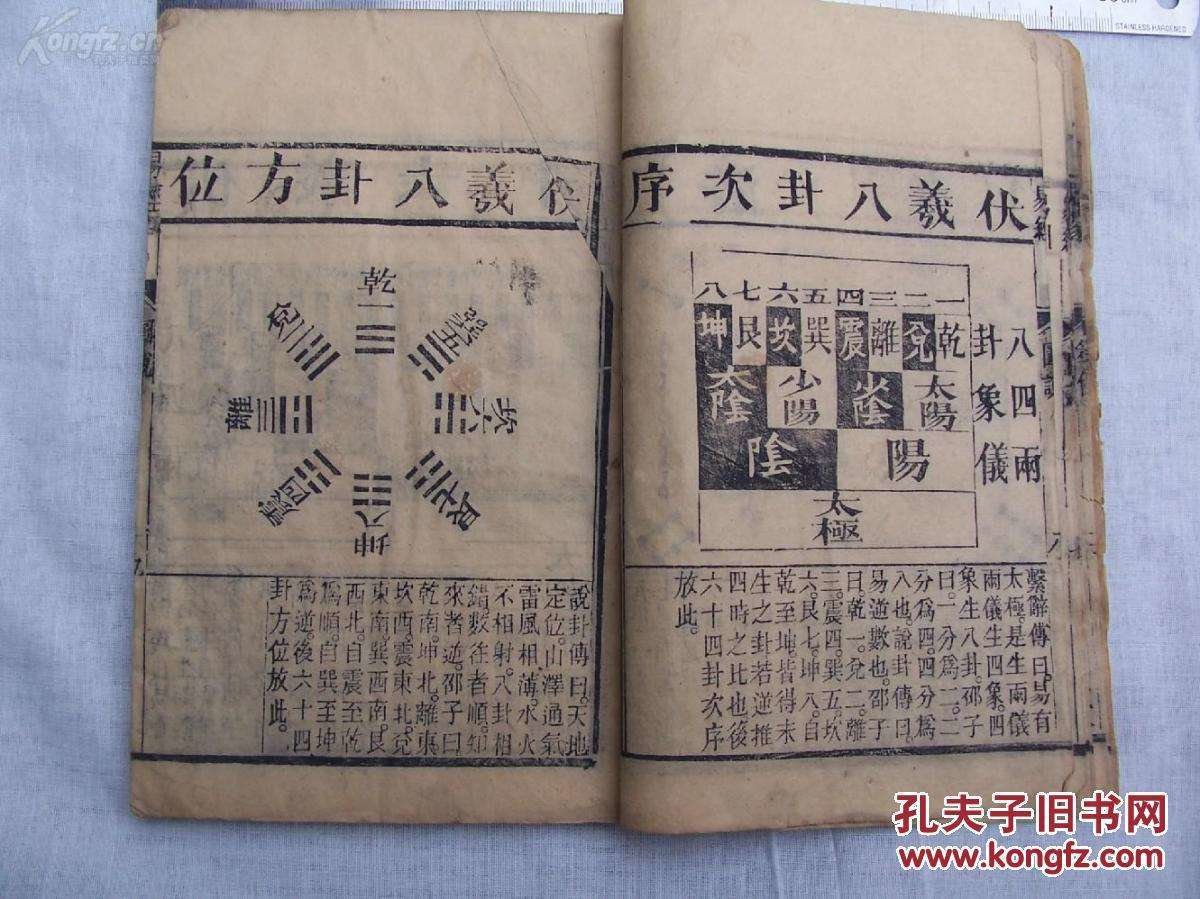 Kongfz.cn
STAINLESS HARDENED
伏羲八卦次序
一二三四五六七八
乾兌離震巽坎艮坤
太陽 少陰 少陽 太陰
陽 陰
太極
八卦
四象
兩儀
繫辭傳曰。易有
太極。是生兩儀
兩儀生四象。四
象生八卦。邵子
曰。一分爲二。二
分爲四。四分爲
八也。說卦傳曰。
易逆數也。邵子
曰。乾一。兌二。離
三。震四。巽五。坎
六。艮七。坤八。自
乾至坤。皆得未
生之卦。若逆推
四時之比也。後
六十四卦次序
放此。
伏羲八卦方位
乾一
兌二
離三
震四
巽五
坎六
艮七
坤八
說卦傳曰。天地
定位。山澤通氣
雷風相薄。水火
不相射。八卦相
錯。數往者順。知
來者逆。邵子曰
乾南。坤北。離東
坎西。震東北。兌
東南。巽西南。艮
西北。自震至乾
爲順。自巽至坤
爲逆。後六十四
卦方位放此。
孔夫子旧书网
www.kongfz.com